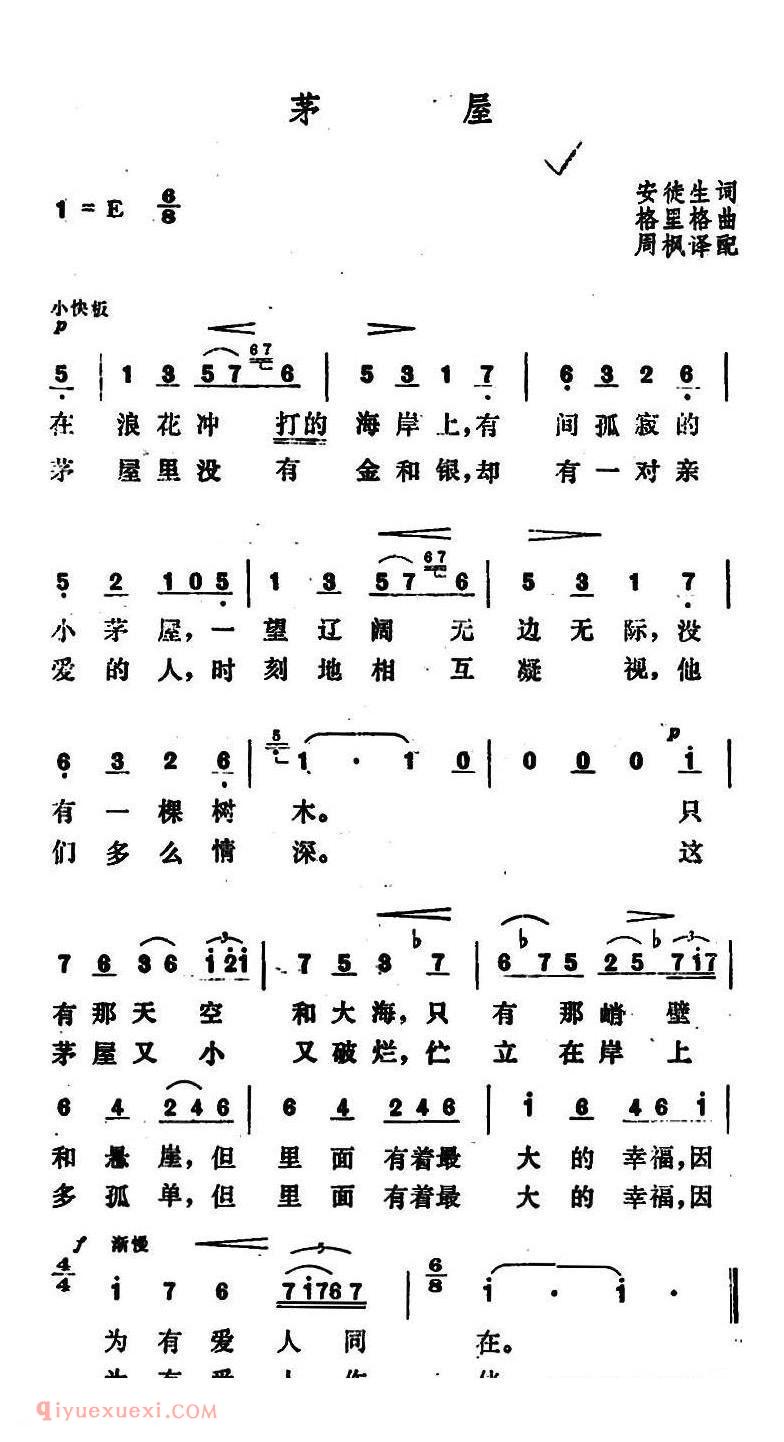 茅屋
1=E 6/8
安徒生词
格里格曲
周枫译配
小快板
p
5 | 1 3 5 7 67 6 | 5 3 1 7 | 6 3 2 6 |
在浪花冲打的海岸上,有间孤寂的
茅屋里没有金和银,却有一对亲
5 2 1 0 5 | 1 3 5 7 67 6 | 5 3 1 7 |
小茅屋,一望辽阔无边无际,没
爱的人,时刻地相互凝视,他
p
6 3 2 6 | 5 1 · 1 0 | 0 0 0 i |
有一棵树木。只
们多么情深。这
7 6 3 6 i 2 i | 7 5 3 ♭7 | 6 ♭7 5 2 5 7 i 7 |
有那天空和大海,只有那峭壁
茅屋又小又破烂,伫立在岸上
6 4 2 4 6 | 6 4 2 4 6 | i 6 4 6 i |
和悬崖,但里面有着最大的幸福,因
多孤单,但里面有着最大的幸福,因
f 渐慢
4/4 i 7 6 7 i 7 6 7 | 6/8 i · i · ‖
为有爱人同在。
为有爱人
qiyuexuexi.com